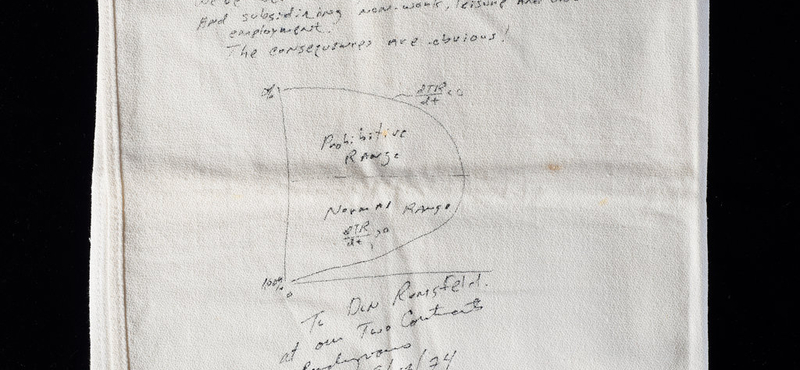 And subsidizing non-work, leisure and un-
employment.
The consequences are obvious!
dTR/dt<0
Prohibitive
Range
Normal Range
dTR/dt>0
100%
0
To Don Rumsfeld.
at our Two Continents
Rendezvous